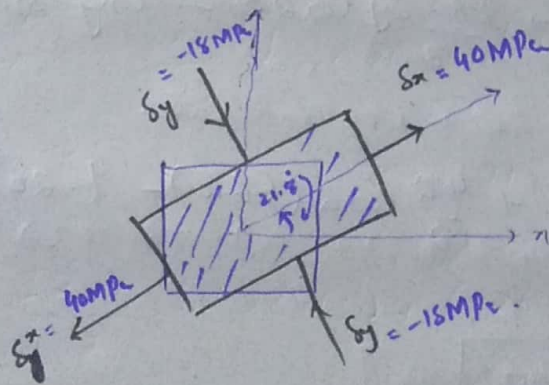 δy = -18MPa
δx = 40MPa
21.8°
x
δx = 40MPa
δy = -18MPa.